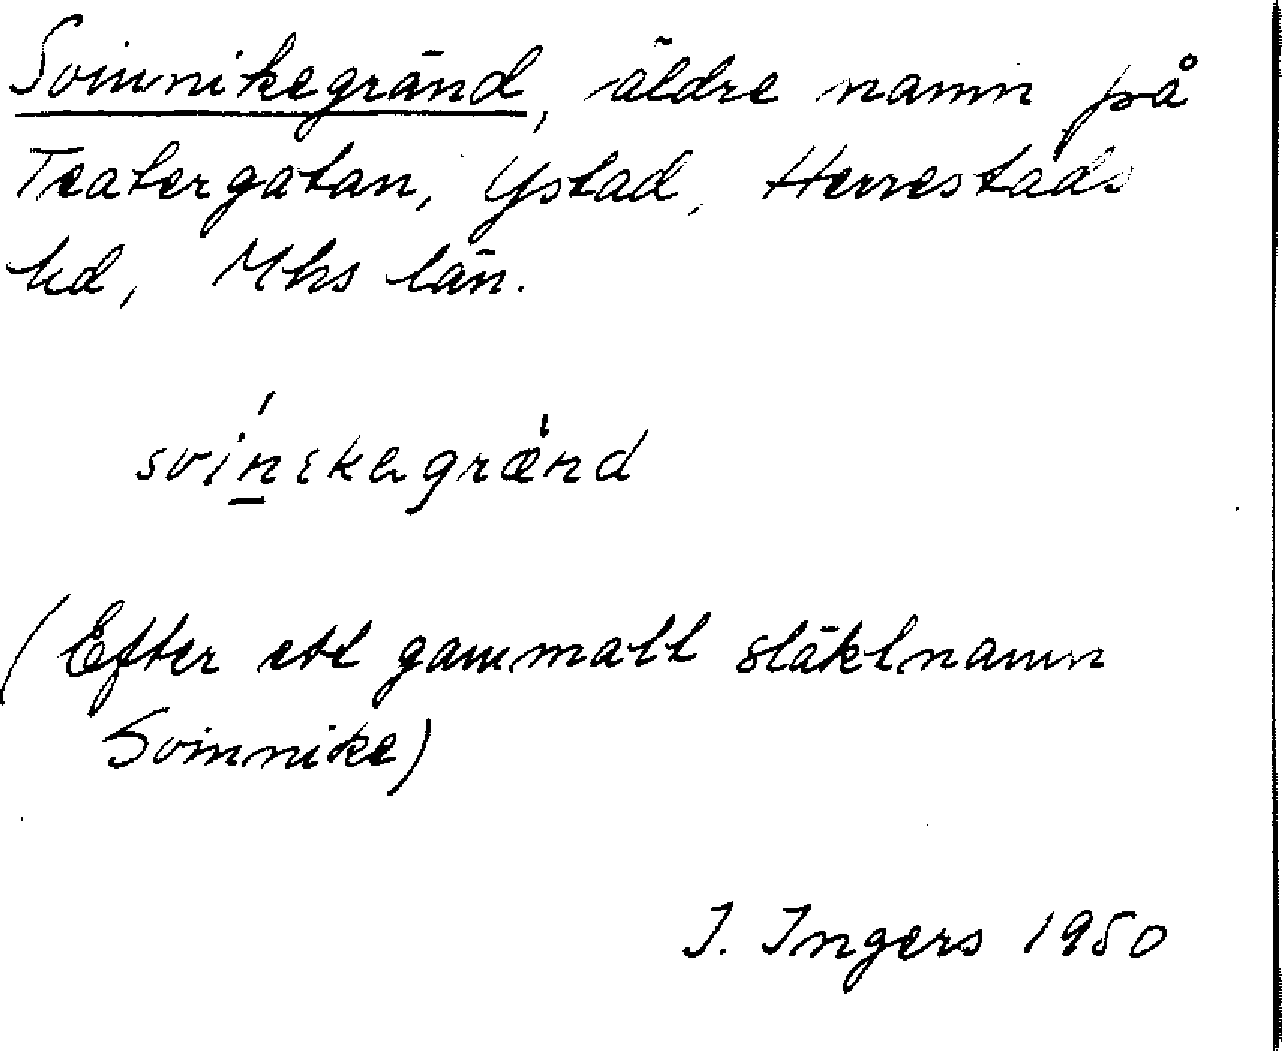 Svinnikegränd, äldre namn på
Teatergatan, Ystad, Herrestads
hd, Mhs län.
svinikagränd
(Efter ett gammalt släktnamn
Svinnike)
I. Ingers 1950